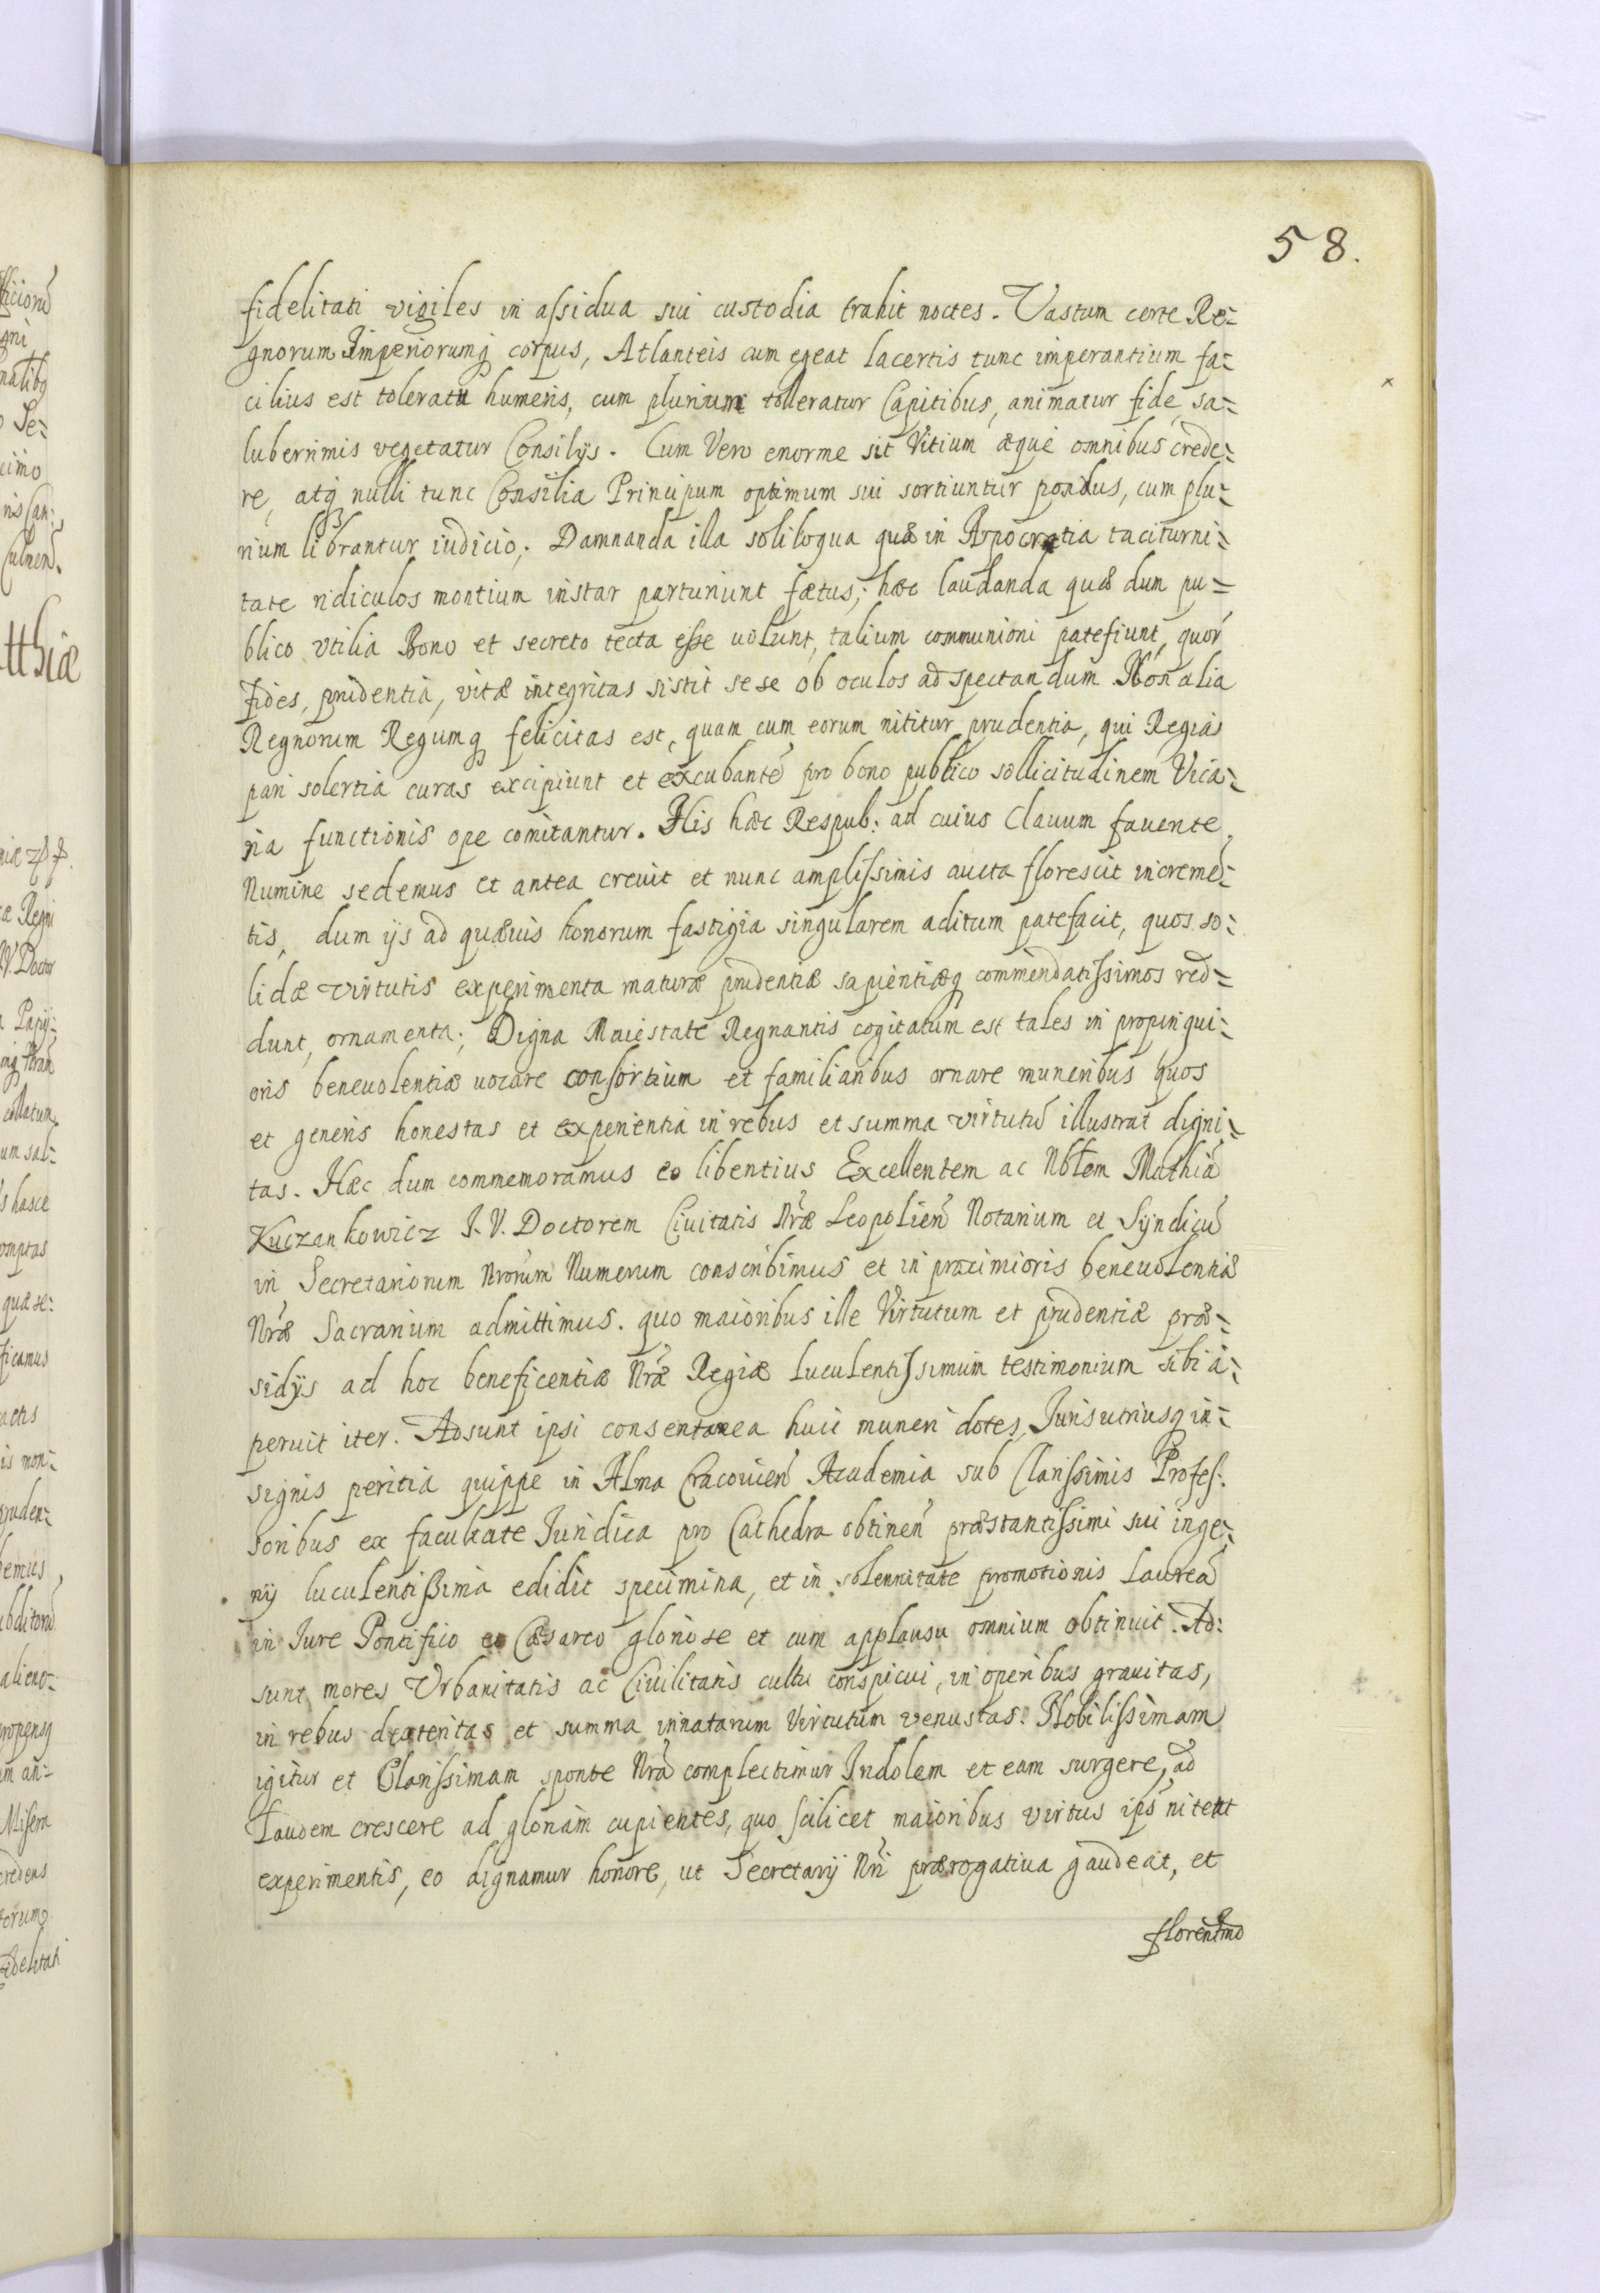 58.
fidelitati vigiles in assidua sui custodia trahit noctes. Vastum certe Re=
gnorum Imperiorumq corpus, Atlanteis cum egeat lacertis tunc imperantium fa=
cilius est toleratu humeris, cum plurium tolleratur Capitibus, animatur fide, sa=
luberrimis vegetatur Consilijs. Cum Vero enorme sit Vitium æque omnibus crede=
re, atq nulli tunc Consilia Principum optimum sui sortiuntur pondus, cum plu=
rium librantur iudicio; Damnanda illa soliloqua quæ in Arpocratia taciturni=
tate ridiculos montium instar parturiunt fœtus; hæc laudanda quæ dum pu=
blico vtilia Bono et secreto tecta esse uolunt, talium communioni patefiunt, quor̃
Fides, prudentia, vitæ integritas sistit sese ob oculos ad spectandum. Non alia
Regnorum Regumq felicitas est, quam cum eorum nititur prudentia, qui Regias
pari solertia curas excipiunt et excubantẽ pro bono publico sollicitudinem Vica=
ria functionis ope comitantur. His hæc Respub: ad cuius Clauum fauente
Numine sedemus et antea creuit et nunc amplissimis aucta florescit incremẽ=
tis, dum ijs ad quæuis honorum fastigia singularem aditum patefacit, quos so=
lidæ virtutis experimenta maturæ prudentiæ sapientiæq commendatissimos red=
dunt, ornamenta; Digna Maiestate Regnantis cogitatum est tales in propinqui=
oris beneuolentiæ uocare consortium et familiaribus ornare muneribus quos
et generis honestas et experientia in rebus et summa virtutũ illustrat digni=
tas. Hæc dum commemoramus eo libentius Excellentem ac Nbtem Mathiã
Kuczankowicz I. V. Doctorem Ciuitatis Nr̃æ Leopolieñ Notarium et Syndicũ
in Secretariorum Nrorum Numerum conscribimus et in proximioris beneuolentiæ
Nr̃æ Sacrarium admittimus. quo maioribus ille Virtutum et prudentiæ præ=
sidijs ad hoc beneficentiæ Nr̃æ Regiæ luculentissimum testimonium sibi a=
peruit iter. Adsunt ipsi consentanea huic muneri dotes, Iuris utriusq in=
signis peritia quippe in Alma Cracouieñ Academia sub Clarissimis Profes:
soribus ex facultate Iuridica pro Cathedra obtineñ præstantissimi sui inge=
nij luculentissima edidit specimina, et in solennitate promotionis Laureã
in Iure Pontificio et Cæsareo gloriose et cum applausu omnium obtinuit. Ad:
sunt mores Vrbanitatis ac Ciuilitatis cultu conspicui, in operibus grauitas,
in rebus dexteritas et summa innatarum Virtutum venustas. Nobilissimam
igitur et Clarissimam sponte Nrã complectimur Indolem et eam surgere, ad
Laudem crescere ad gloriam cupientes, quo scilicet maioribus virtus ips̃ niteat
experimentis, eo dignamur honore, ut Secretarij Nri prærogatiua gaudeat, et